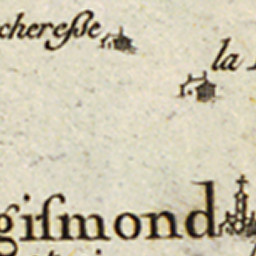 chereſſe
la
giſmond